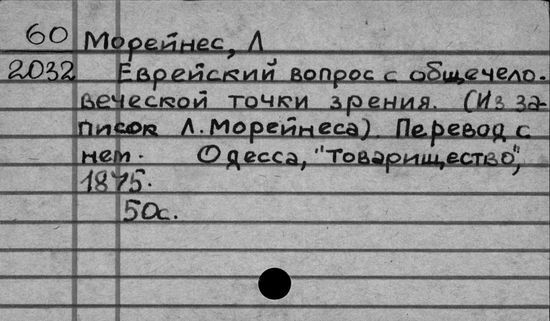 60 Морейнес, Л
2032 Еврейский вопрос с общечело-
веческой точки зрения. (Из за-
писок Л. Морейнеса). Перевод с
нем. Одесса, "Товарищество",
1875.
50с.